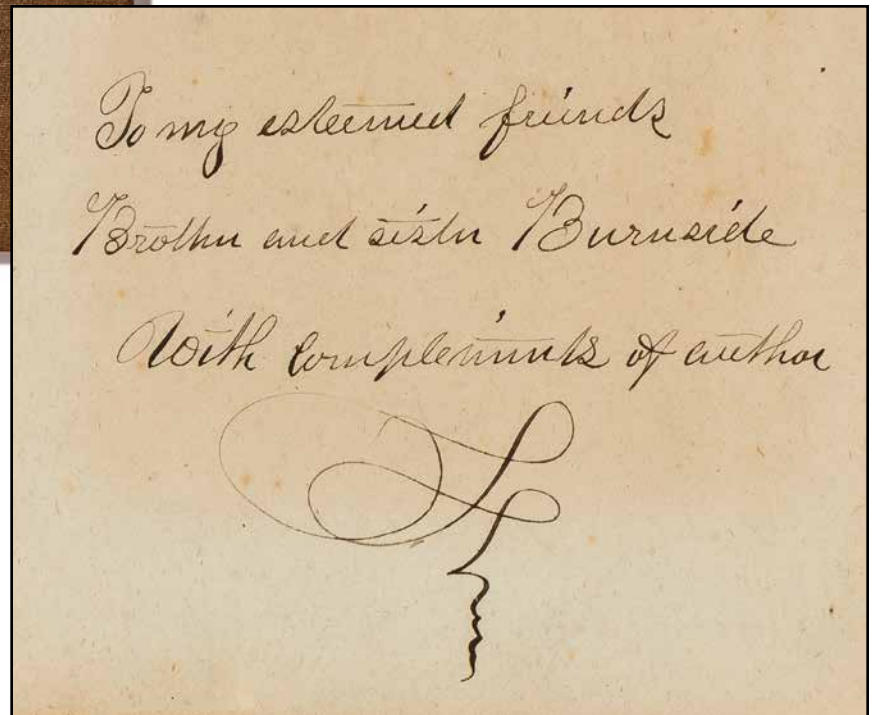 To my esteemed friends
Brother and sister Burnside
With compliments of author